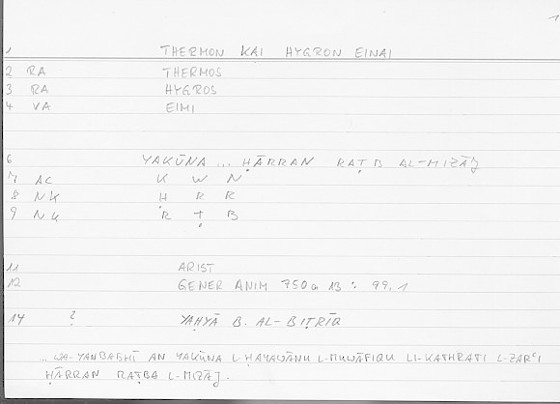 1
1 THERMON KAI HYGRON EINAI
2 RA THERMOS
3 RA HYGROS
4 VA EIMI
6 YAKŪNA ... ḤĀRRAN RAṬB AL-MIZĀǦ
7 AC K W N
8 NK Ḥ R R
9 NK R Ṭ B
11 ARIST
12 GENER ANIM 750a 13 : 99,1
14 ? YAḤYĀ B. AL-BIṬRĪQ
.. WA-YANBAGHĪ AN YAKŪNA L-ḤAYAWĀNU L-MUWĀFIQU LI-KATHRATI L-ZARʿI
ḤĀRRAN RAṬBA L-MIZĀǦ.